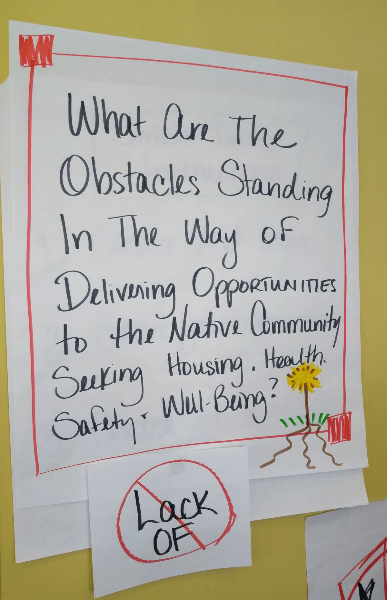 What Are The
Obstacles Standing
In The Way of
Delivering Opportunities
to the Native Community
Seeking Housing. Health.
Safety. Well-Being?
Lack
OF